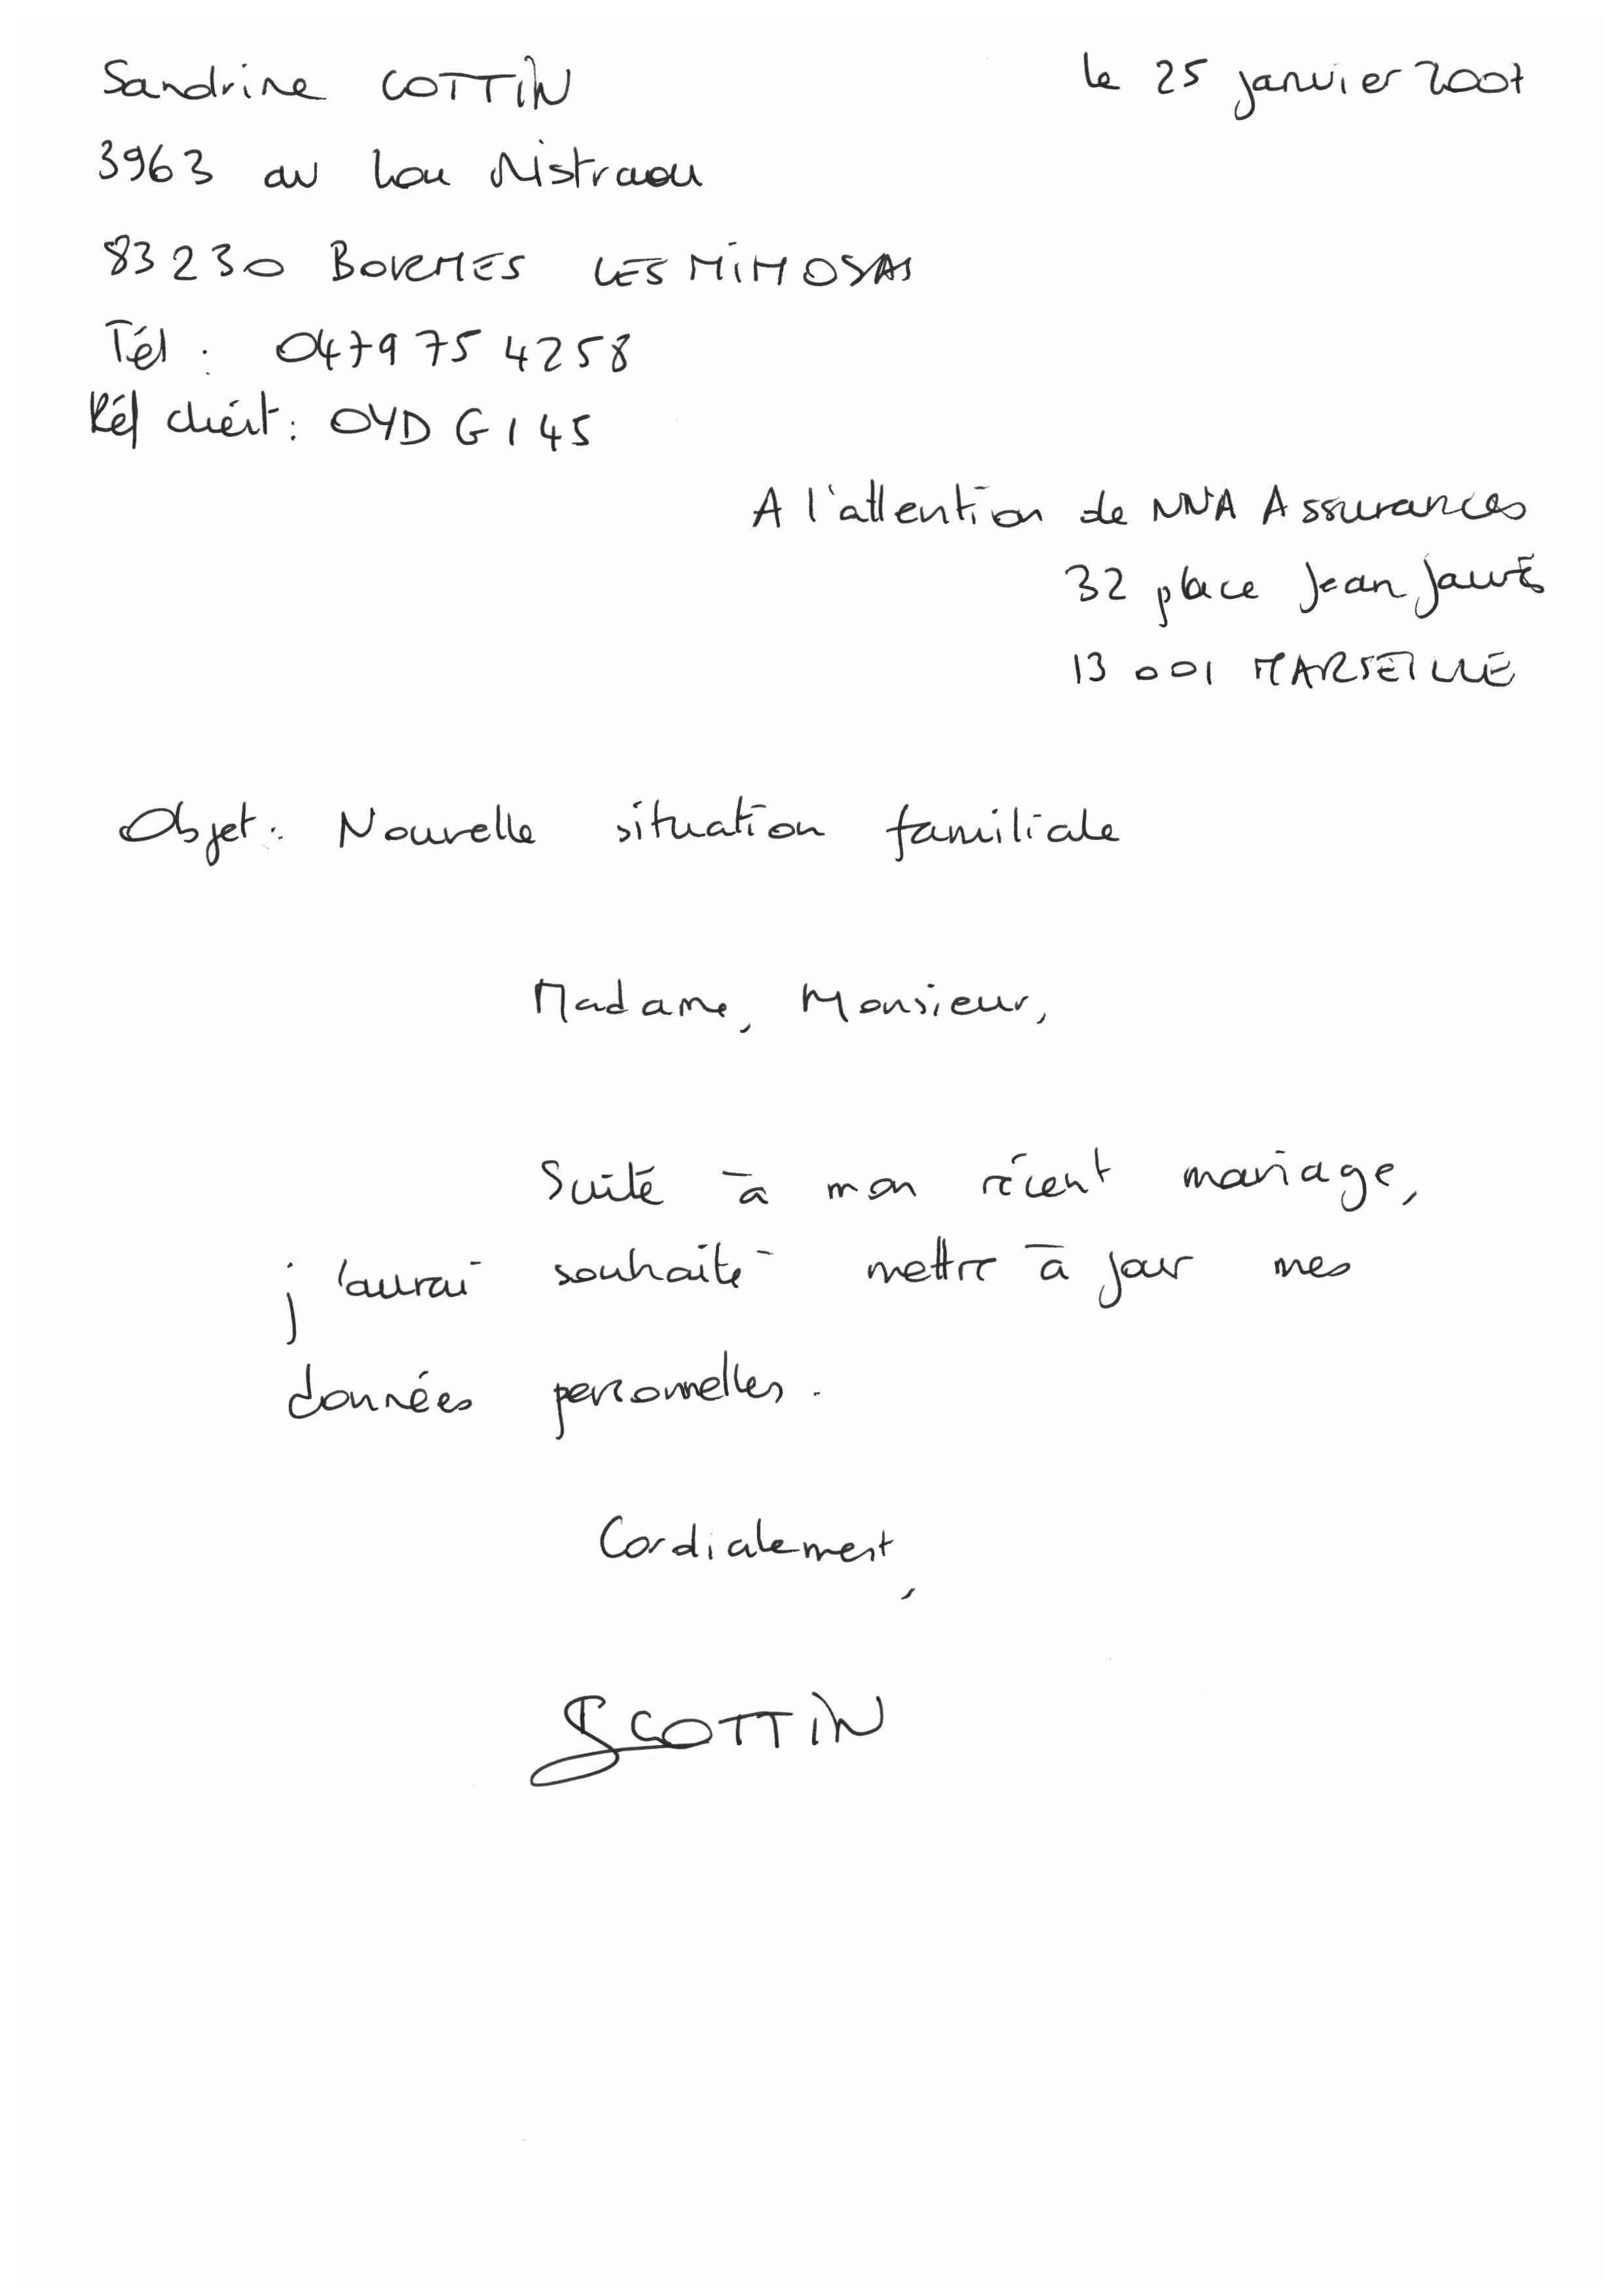 Sandrine COTTIN
le 25 janvier 2007
3963 av Lou Mistraou
83230 BORMES LES MIMOSAS
Tél : 0479754258
Réf client : OYDGI45
A l'attention de NNA Assurances
32 place Jean Jaurès
13001 MARSEILLE
Objet : Nouvelle situation familiale
Madame, Monsieur,
Suite à mon récent mariage,
j'aurai souhaité mettre à jour mes
données personnelles.
Cordialement,
SCOTTIN